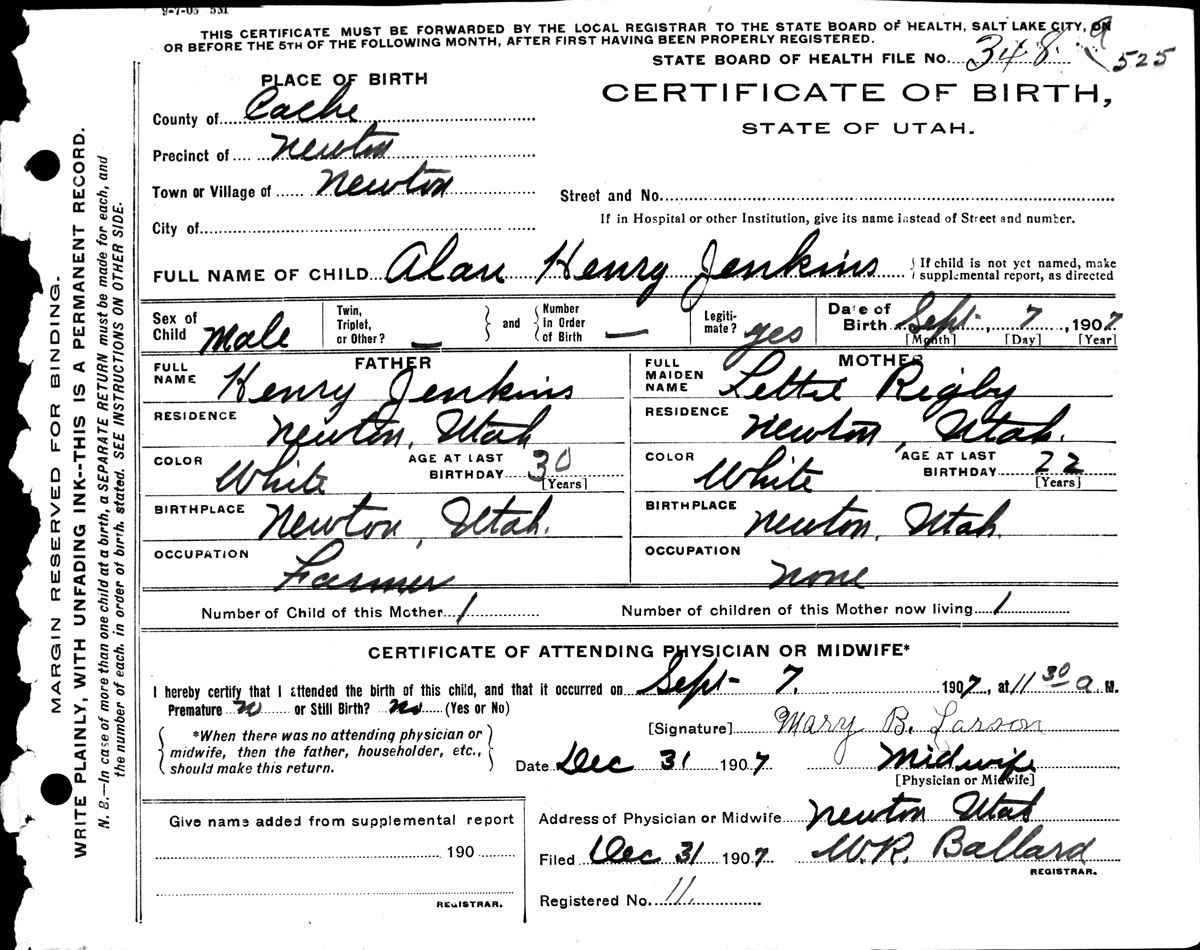 9-7-05 5M
THIS CERTIFICATE MUST BE FORWARDED BY THE LOCAL REGISTRAR TO THE STATE BOARD OF HEALTH, SALT LAKE CITY, ON
OR BEFORE THE 5TH OF THE FOLLOWING MONTH, AFTER FIRST HAVING BEEN PROPERLY REGISTERED.
STATE BOARD OF HEALTH FILE No. 348 525
PLACE OF BIRTH
CERTIFICATE OF BIRTH,
STATE OF UTAH.
County of Cache
Precinct of Newton
Town or Village of Newton
Street and No.
If in Hospital or other Institution, give its name instead of Street and number.
City of
FULL NAME OF CHILD Alan Henry Jenkins { If child is not yet named, make
supplemental report, as directed
Sex of Child Male
Twin, Triplet, or Other? — } and { Number In Order of Birth —
Legiti-mate? yes
Date of Birth Sept, 7, 1907
[Month] [Day] [Year]
FATHER
MOTHER
FULL NAME Henry Jenkins
FULL MAIDEN NAME Lettie Rigby
RESIDENCE Newton, Utah
RESIDENCE Newton, Utah.
COLOR White AGE AT LAST BIRTHDAY 30 [Years]
COLOR White AGE AT LAST BIRTHDAY 22 [Years]
BIRTHPLACE Newton, Utah.
BIRTHPLACE Newton, Utah.
OCCUPATION Farmer
OCCUPATION None
Number of Child of this Mother 1
Number of children of this Mother now living 1
CERTIFICATE OF ATTENDING PHYSICIAN OR MIDWIFE*
I hereby certify that I attended the birth of this child, and that it occurred on Sept 7. 1907, at 11 30 a. M.
Premature no or Still Birth? no (Yes or No)
*When there was no attending physician or
midwife, then the father, householder, etc.,
should make this return.
[Signature] Mary B. Larson
Date Dec 31 1907 Midwife
[Physician or Midwife]
Give name added from supplemental report
190
REGISTRAR.
Address of Physician or Midwife Newton Utah
Filed Dec 31 1907 W.R. Ballard
REGISTRAR.
Registered No. 11.
MARGIN RESERVED FOR BINDING.
WRITE PLAINLY, WITH UNFADING INK--THIS IS A PERMANENT RECORD.
N. B.—In case of more than one child at a birth, a SEPARATE RETURN must be made for each, and
the number of each, in order of birth, stated. SEE INSTRUCTIONS ON OTHER SIDE.